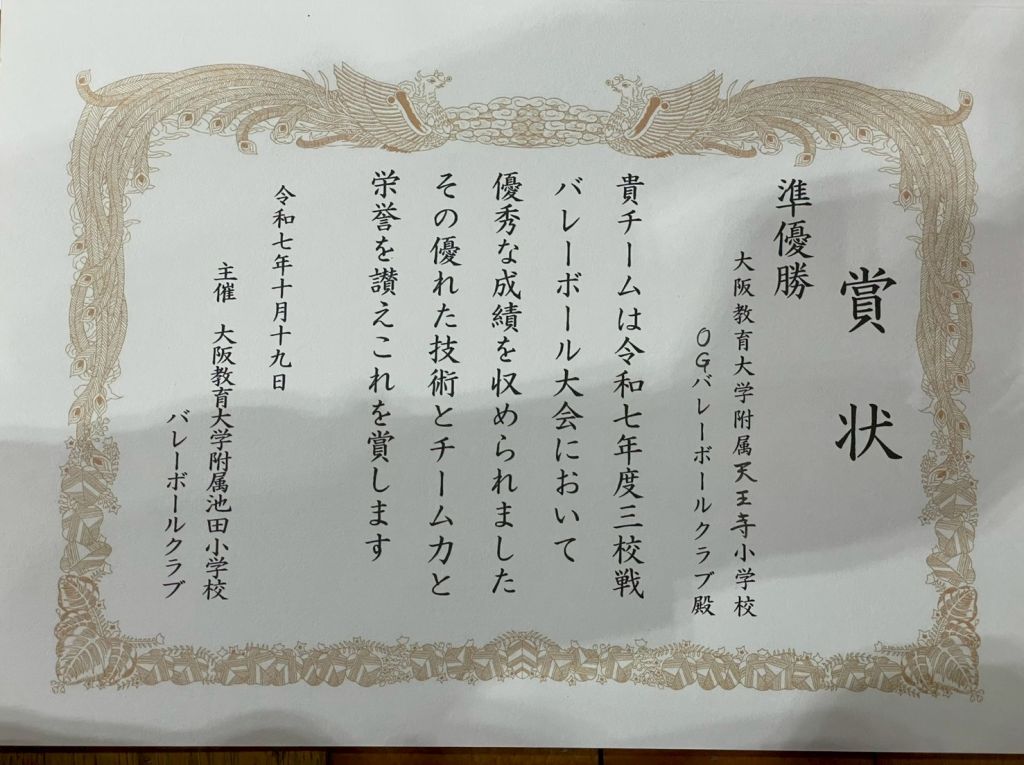 賞状
準優勝
大阪教育大学附属天王寺小学校
OGバレーボールクラブ殿
貴チームは令和七年度三校戦
バレーボール大会において
優秀な成績を収められました
その優れた技術とチーム力と
栄誉を讃えこれを賞します
令和七年十月十九日
主催 大阪教育大学附属池田小学校
バレーボールクラブ